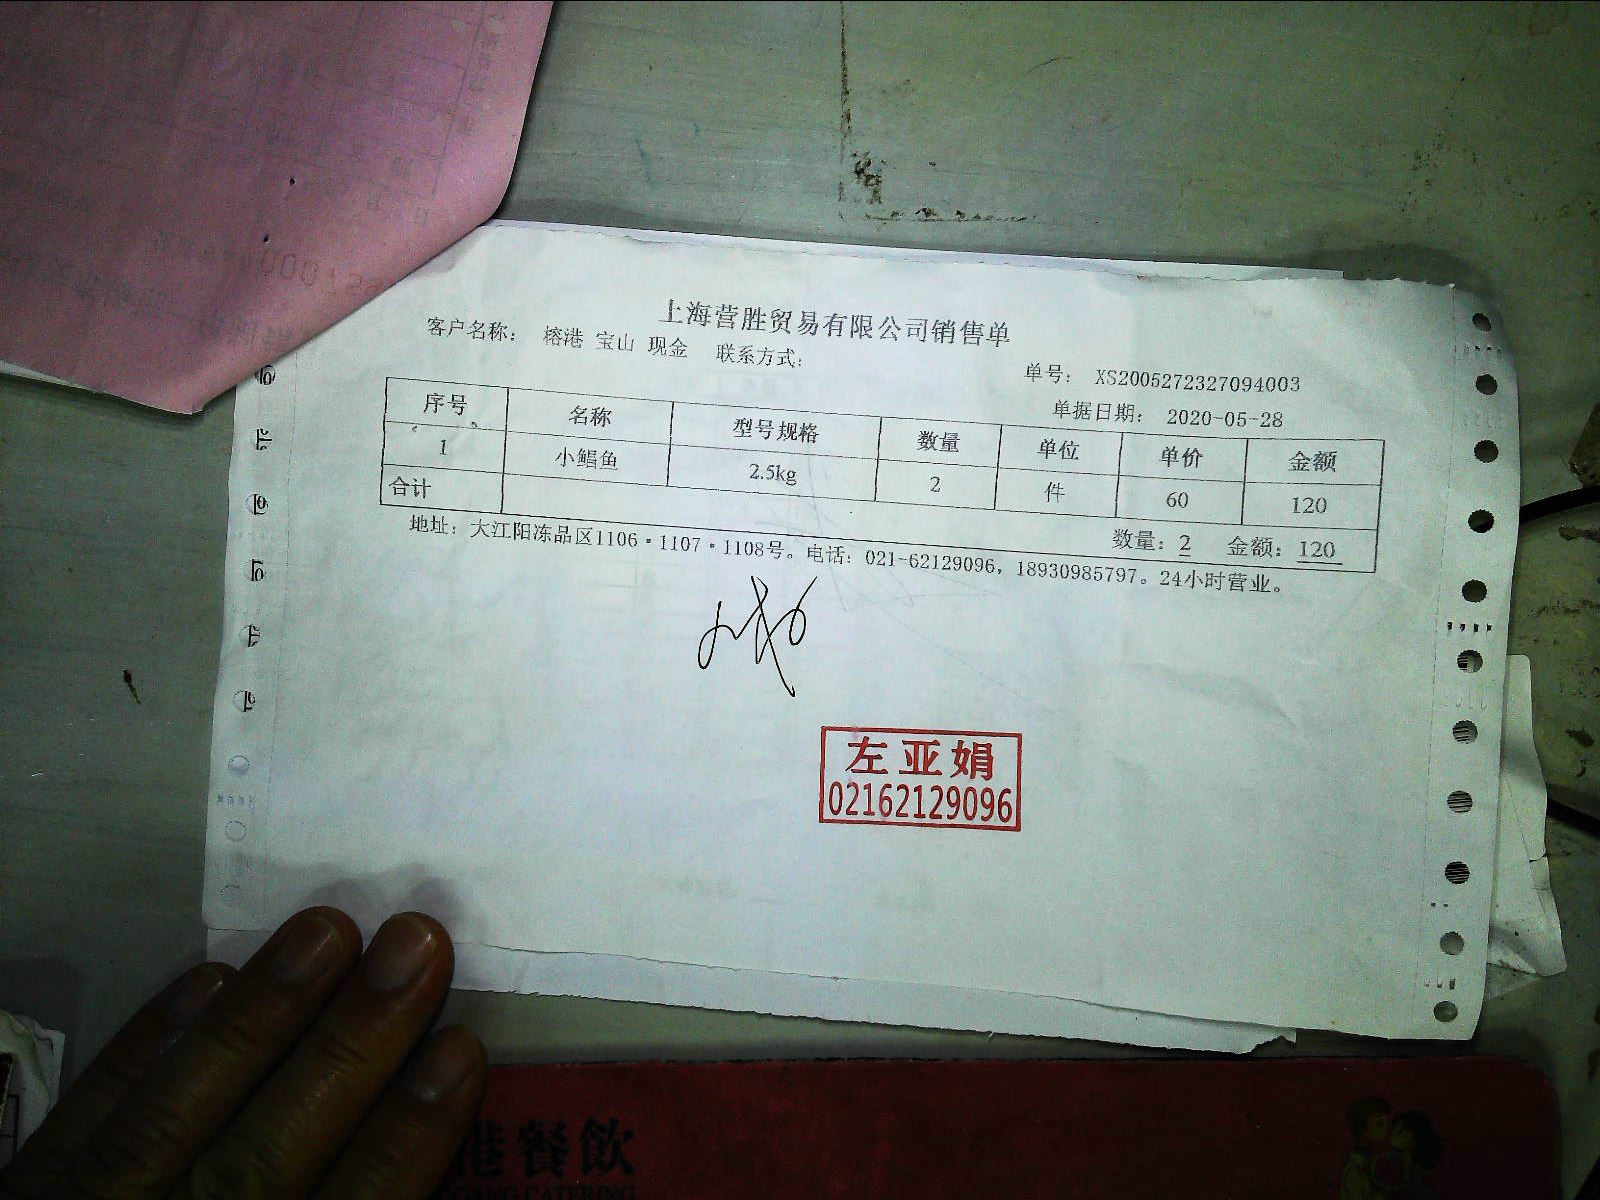 上海营胜贸易有限公司销售单
客户名称： 榕港 宝山 现金 联系方式：
单号： XS2005272327094003
单据日期： 2020-05-28
序号 名称 型号规格 数量 单位 单价 金额
1 小鲳鱼 2.5kg 2 件 60 120
合计 数量：2 金额：120
地址：大江阳冻品区1106·1107·1108号。电话：021-62129096，18930985797。24小时营业。
左亚娟
02162129096
港餐飲
GANG CATERING